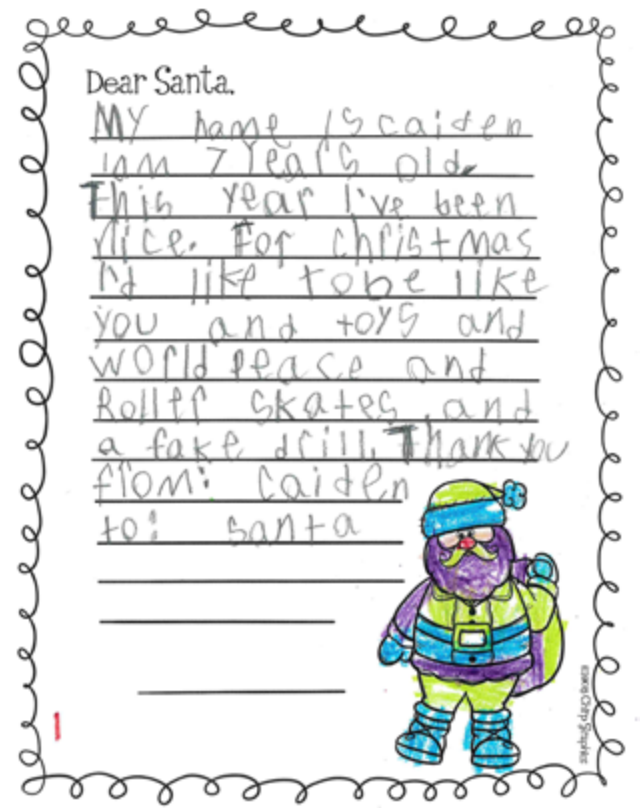 Dear Santa,
MY name is caiden
iam 7 years old.
This year I've been
nice. For christmas
I'd like to be like
you and toys and
world peace and
Roller skates and
a fake drill. Thank you
from: caiden
to: santa